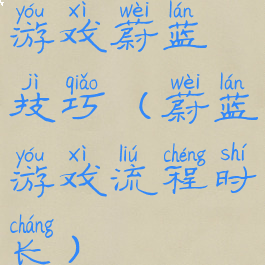 yóu xì wèi lán
游戏蔚蓝
jì qiǎo wèi lán
技巧（蔚蓝
yóu xì liú chéng shí
游戏流程时
cháng
长）